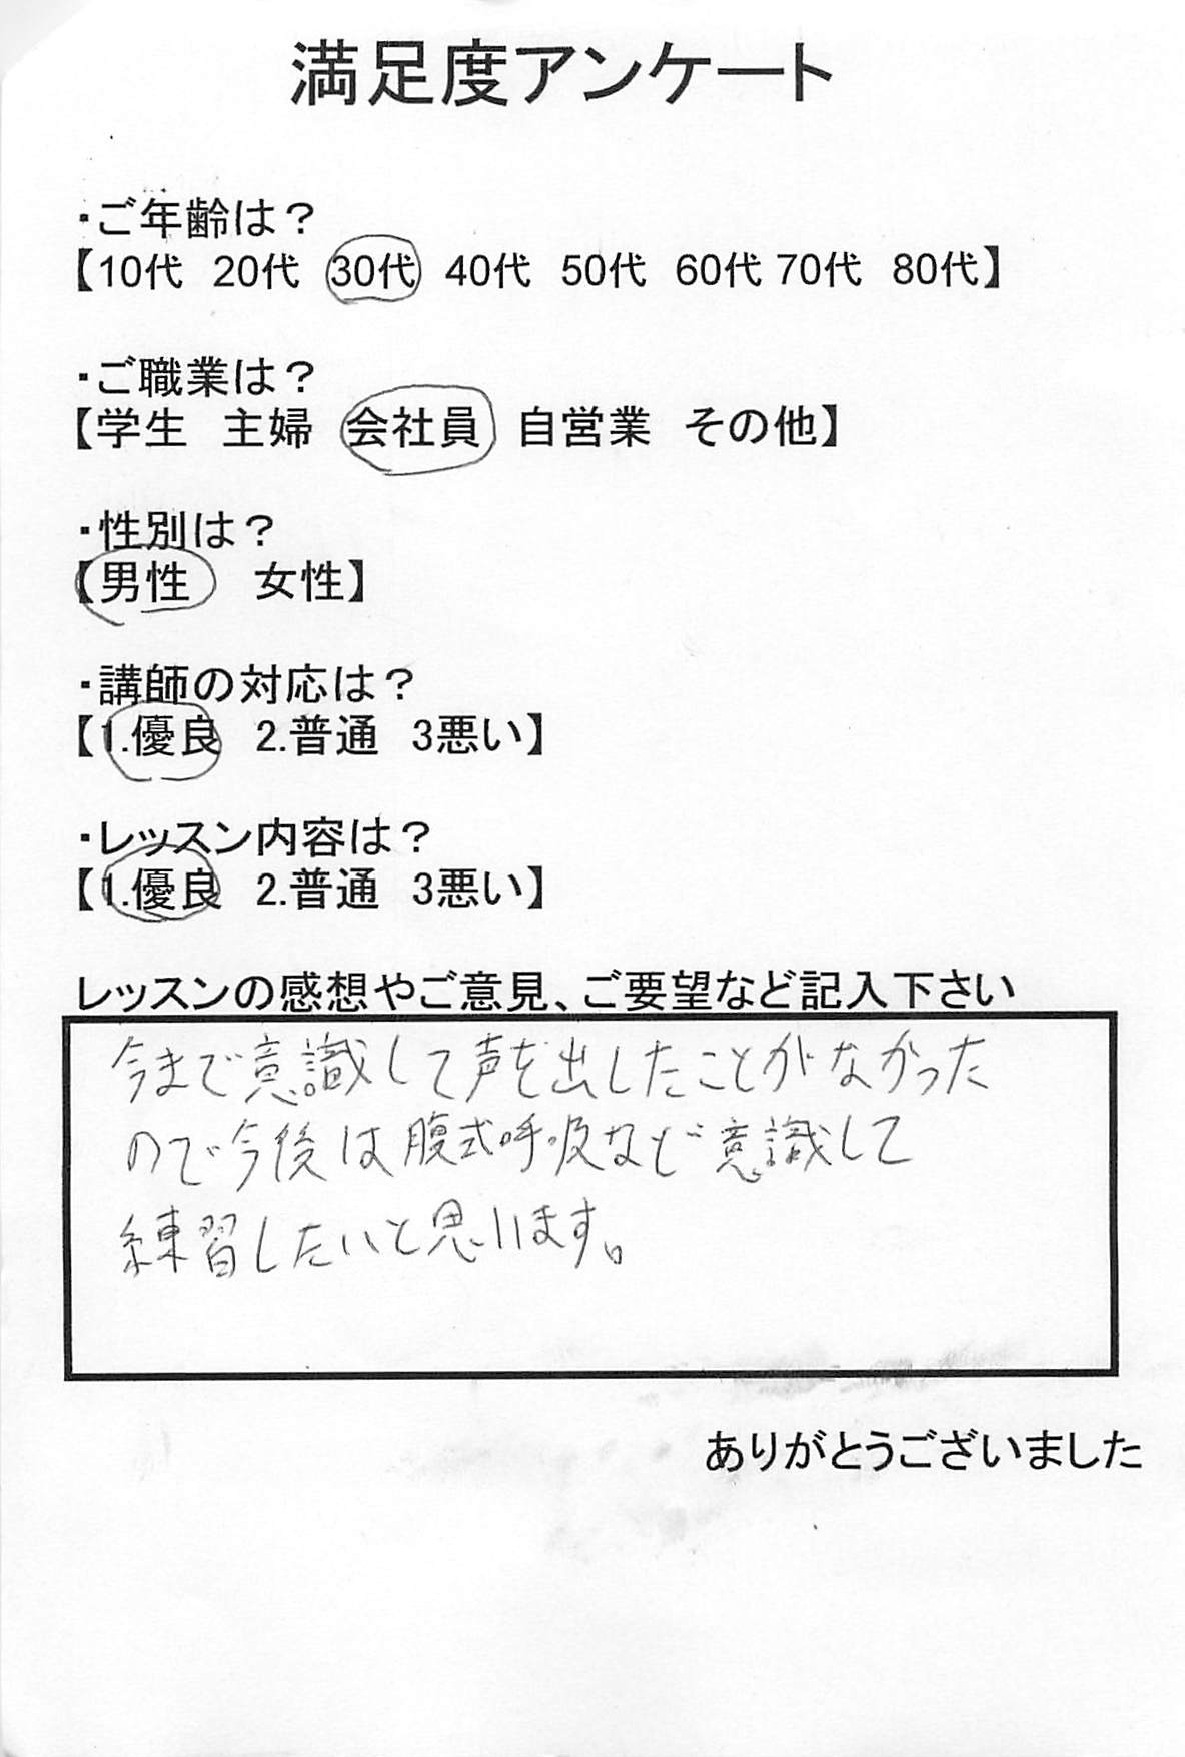 満足度アンケート
・ご年齢は？
【10代 20代 30代 40代 50代 60代 70代 80代】
・ご職業は？
【学生 主婦 会社員 自営業 その他】
・性別は？
【男性 女性】
・講師の対応は？
【1.優良 2.普通 3悪い】
・レッスン内容は？
【1.優良 2.普通 3悪い】
レッスンの感想やご意見、ご要望など記入下さい
今まで意識して声を出したことがなかった
ので今後は腹式呼吸など意識して
練習したいと思います。
ありがとうございました